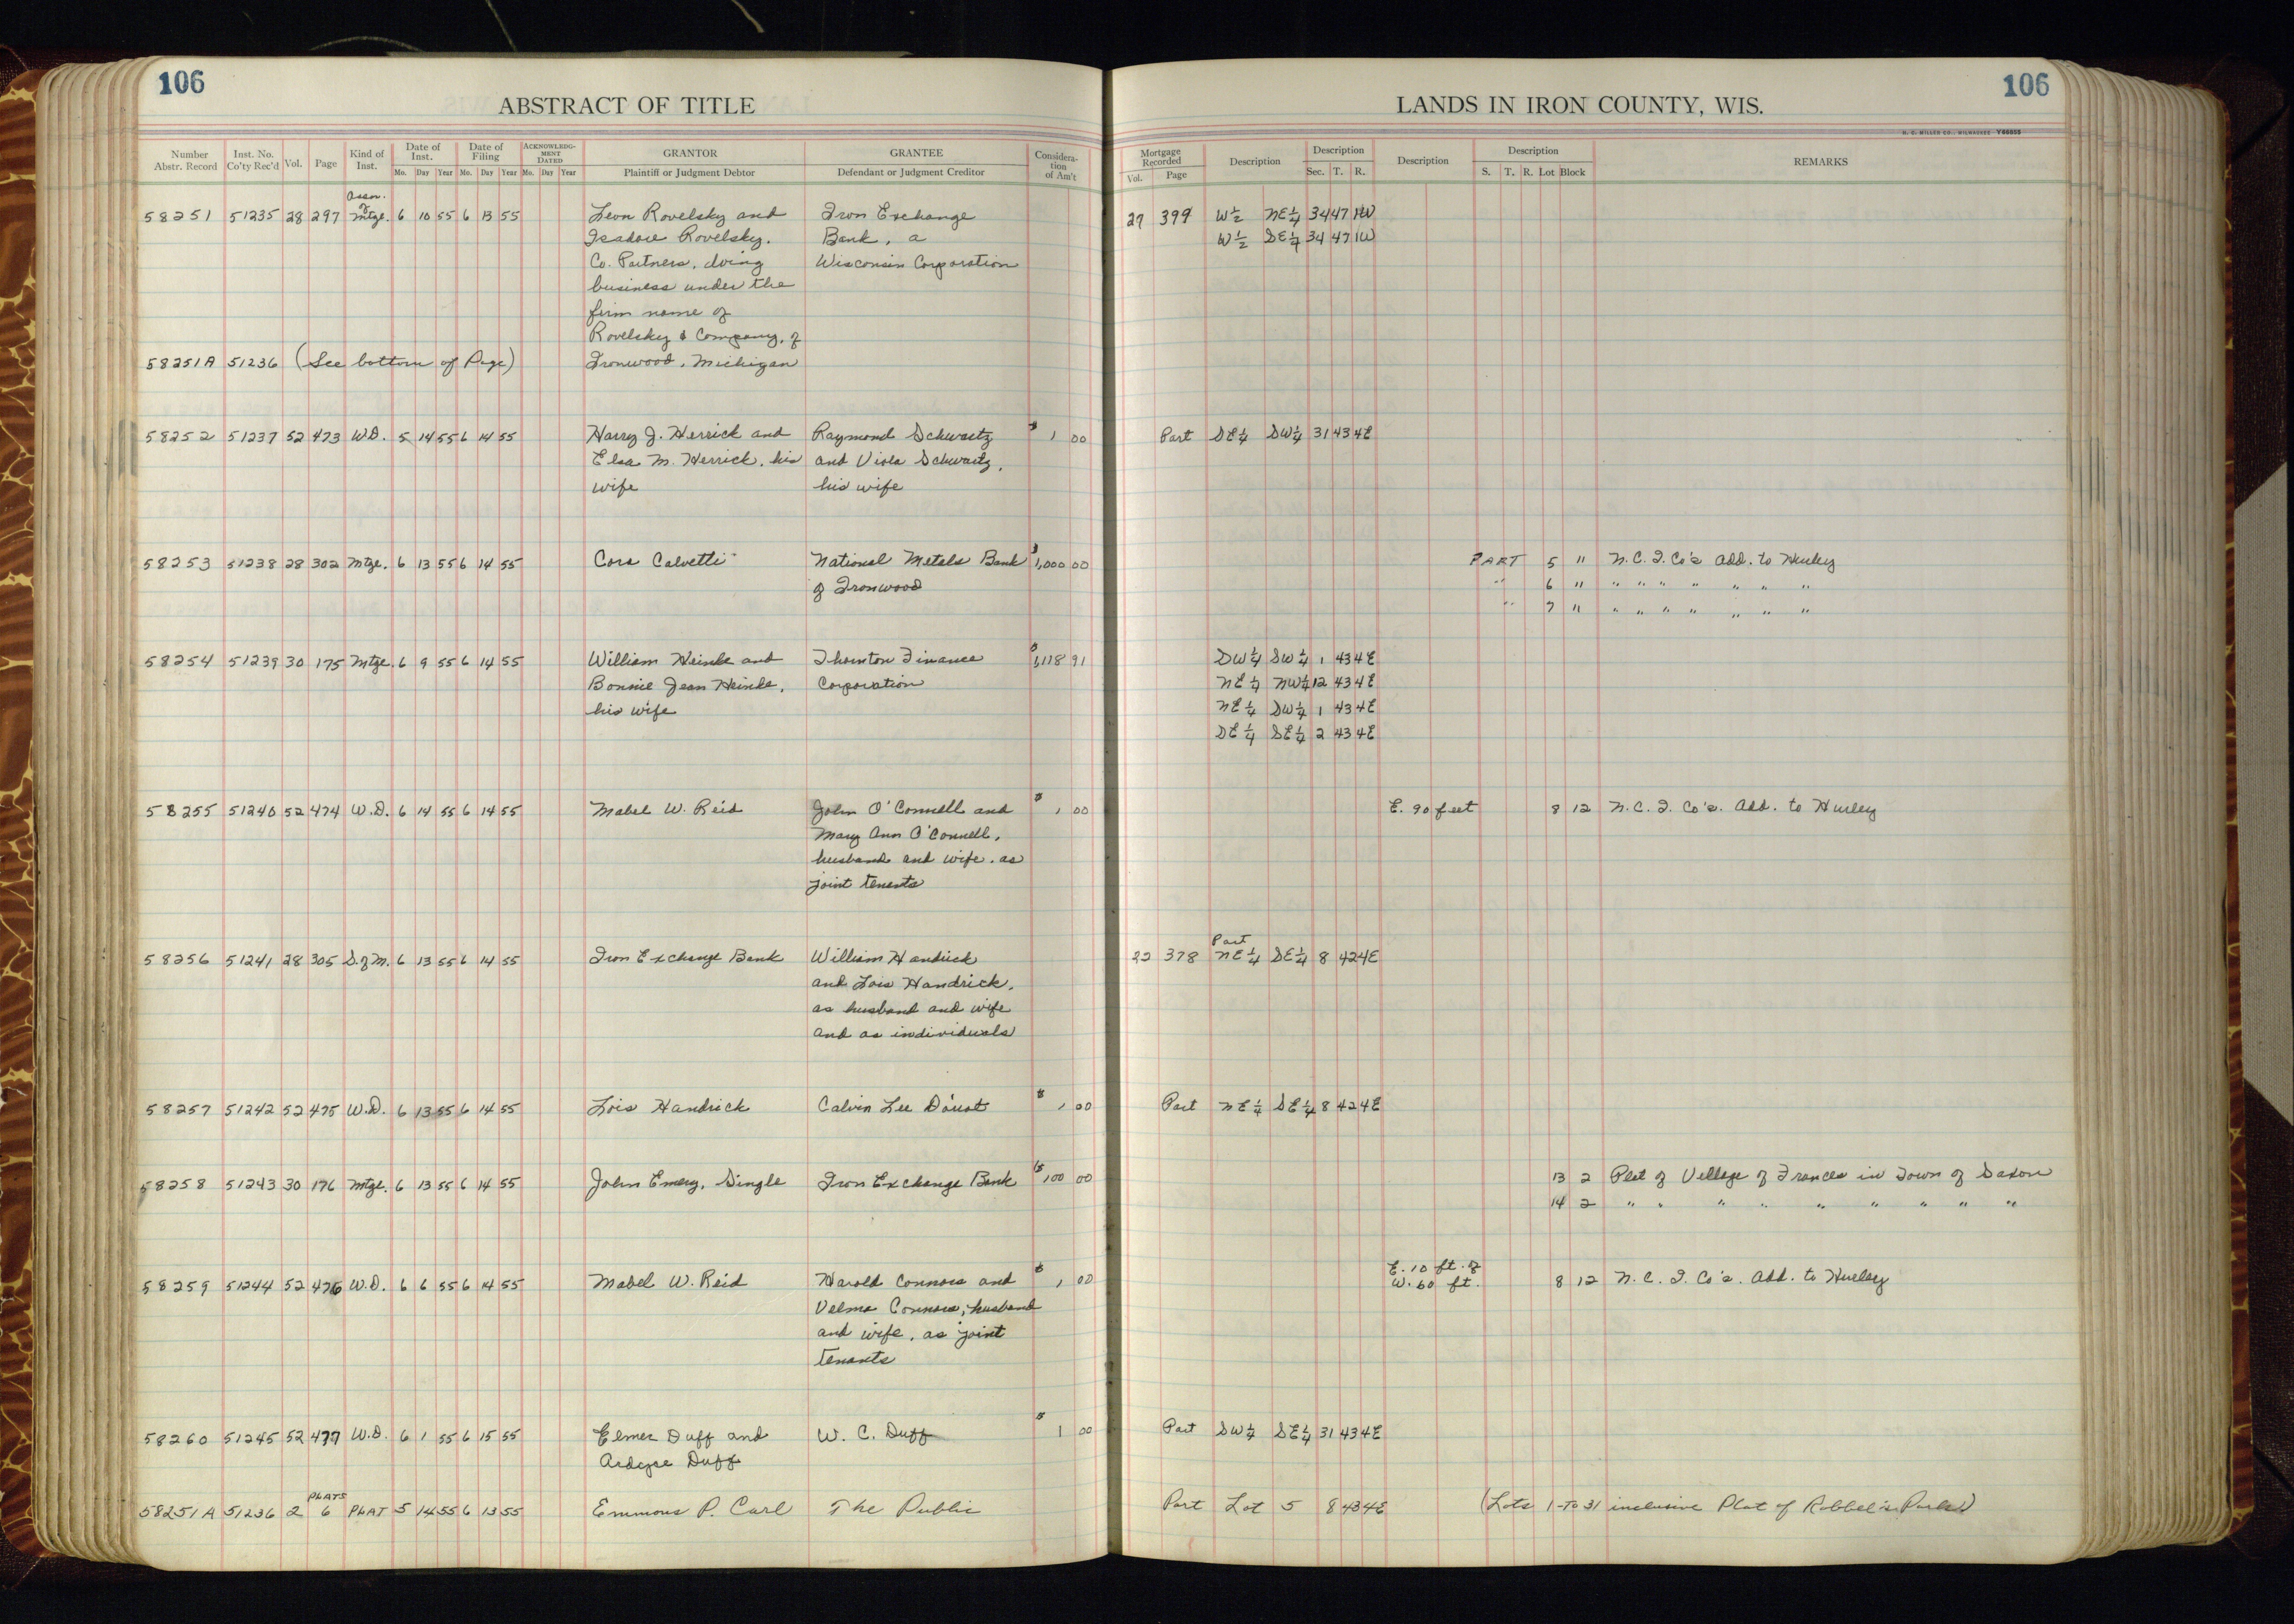 106
ABSTRACT OF TITLE
Number Abstr. Record Inst. No. Co'ty Rec'd Vol. Page Kind of Inst. Date of Inst. Mo. Day Year Date of Filing Mo. Day Year ACKNOWLEDGMENT DATED Mo. Day Year GRANTOR Plaintiff or Judgment Debtor GRANTEE Defendant or Judgment Creditor Consideration of Am't
LANDS IN IRON COUNTY, WIS.
106
H. C. MILLER CO., MILWAUKEE Y66865
Mortgage Recorded Vol. Page Description Description Sec. T. R. Description Description S. T. R. Lot Block REMARKS
Assn. of
58251 51235 28 297 Mtge. 6 10 55 6 13 55 Leon Rovelsky and Iron Exchange 27 399 W 1/2 NE 1/4 34 47 1W
Isadore Rovelsky, Bank, a W 1/2 SE 1/4 34 47 1W
Co. Partners, doing Wisconsin Corporation
business under the
firm name of
Rovelsky & Company, of
58251A 51236 (See bottom of Page) Ironwood, Michigan
58252 51237 52 473 W.D. 5 14 55 6 14 55 Harry J. Herrick and Raymond Schwartz $ 1 00 Part SE 1/4 SW 1/4 31 43 4E
Elsa M. Herrick, his and Viola Schwartz,
wife his wife
58253 51238 28 302 Mtge. 6 13 55 6 14 55 Cora Calvetti National Metals Bank $1,000 00 PART 5 11 N.C.I. Co's Add. to Hurley
of Ironwood " 6 11 " " " " " " "
" 7 11 " " " " " " "
58254 51239 30 175 Mtge. 6 9 55 6 14 55 William Heinke and Thornton Finance $1,118 91 SW 1/4 SW 1/4 1 43 4E
Bonnie Jean Heinke, Corporation NE 1/4 NW 1/4 12 43 4E
his wife NE 1/4 SW 1/4 1 43 4E
SE 1/4 SE 1/4 2 43 4E
58255 51240 52 474 W.D. 6 14 55 6 14 55 Mabel W. Reid John O'Connell and $ 1 00 E. 90 feet 8 12 N.C.I. Co's. Add. to Hurley
Mary Ann O'Connell,
husband and wife, as
joint tenants
Part
58256 51241 28 305 S. of M. 6 13 55 6 14 55 Iron Exchange Bank William Handrick 22 378 NE 1/4 SE 1/4 8 42 4E
and Lois Handrick,
as husband and wife
and as individuals
58257 51242 52 475 W.D. 6 13 55 6 14 55 Lois Handrick Calvin Lee D'aust $ 1 00 Part NE 1/4 SE 1/4 8 42 4E
58258 51243 30 176 Mtge. 6 13 55 6 14 55 John Emery, Single Iron Exchange Bank $ 100 00 13 2 Plat of Village of Francis in Town of Saxon
14 2 " " " " " " " " "
58259 51244 52 476 W.D. 6 6 55 6 14 55 Mabel W. Reid Harold Connors and $ 1 00 E. 10 ft. of W. 60 ft. 8 12 N.C.I. Co's. Add. to Hurley
Velma Connors, husband
and wife, as joint
tenants
58260 51245 52 477 W.D. 6 1 55 6 15 55 Elmer Duff and W. C. Duff $ 1 00 Part SW 1/4 SE 1/4 31 43 4E
Ardyce Duff
PLATS
58251A 51236 2 6 PLAT 5 14 55 6 13 55 Emmons P. Carl The Public Part Lot 5 8 43 4E (Lots 1 to 31 inclusive Plat of